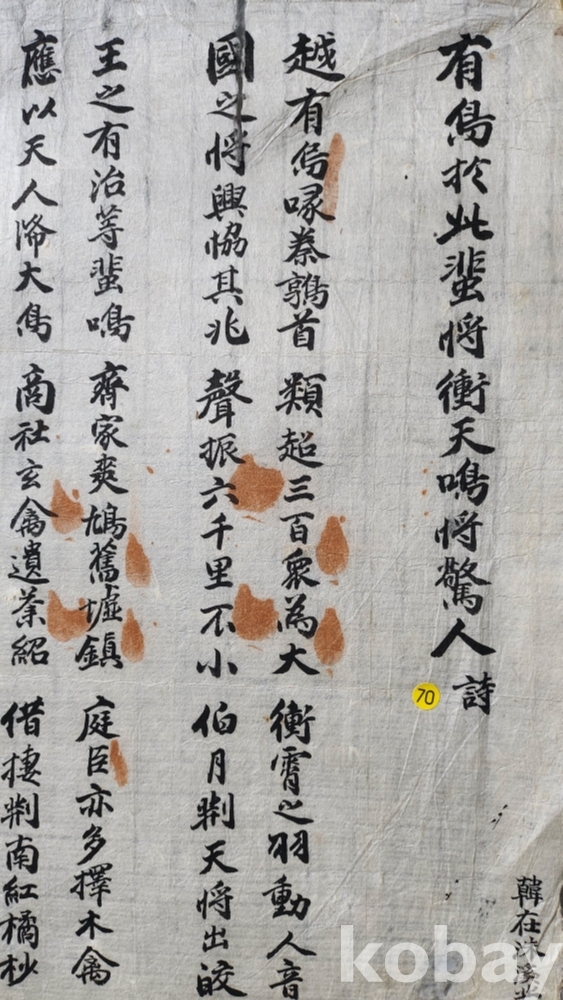 有鳥於此蜚將衝天鳴將驚人 詩
越有鳥喙秦鶉首
國之將興協其兆
類超三百衆為大
聲振六千里不小
衝霄之羽動人音
伯月荊天將出皎
王之有治等蜚鳴
應以天人俙大鳥
齊家爽鳩舊墟鎮
商社玄禽遺業紹
庭臣亦多擇木禽
借捿荊南紅橘杪
韓在洙
70
kobay